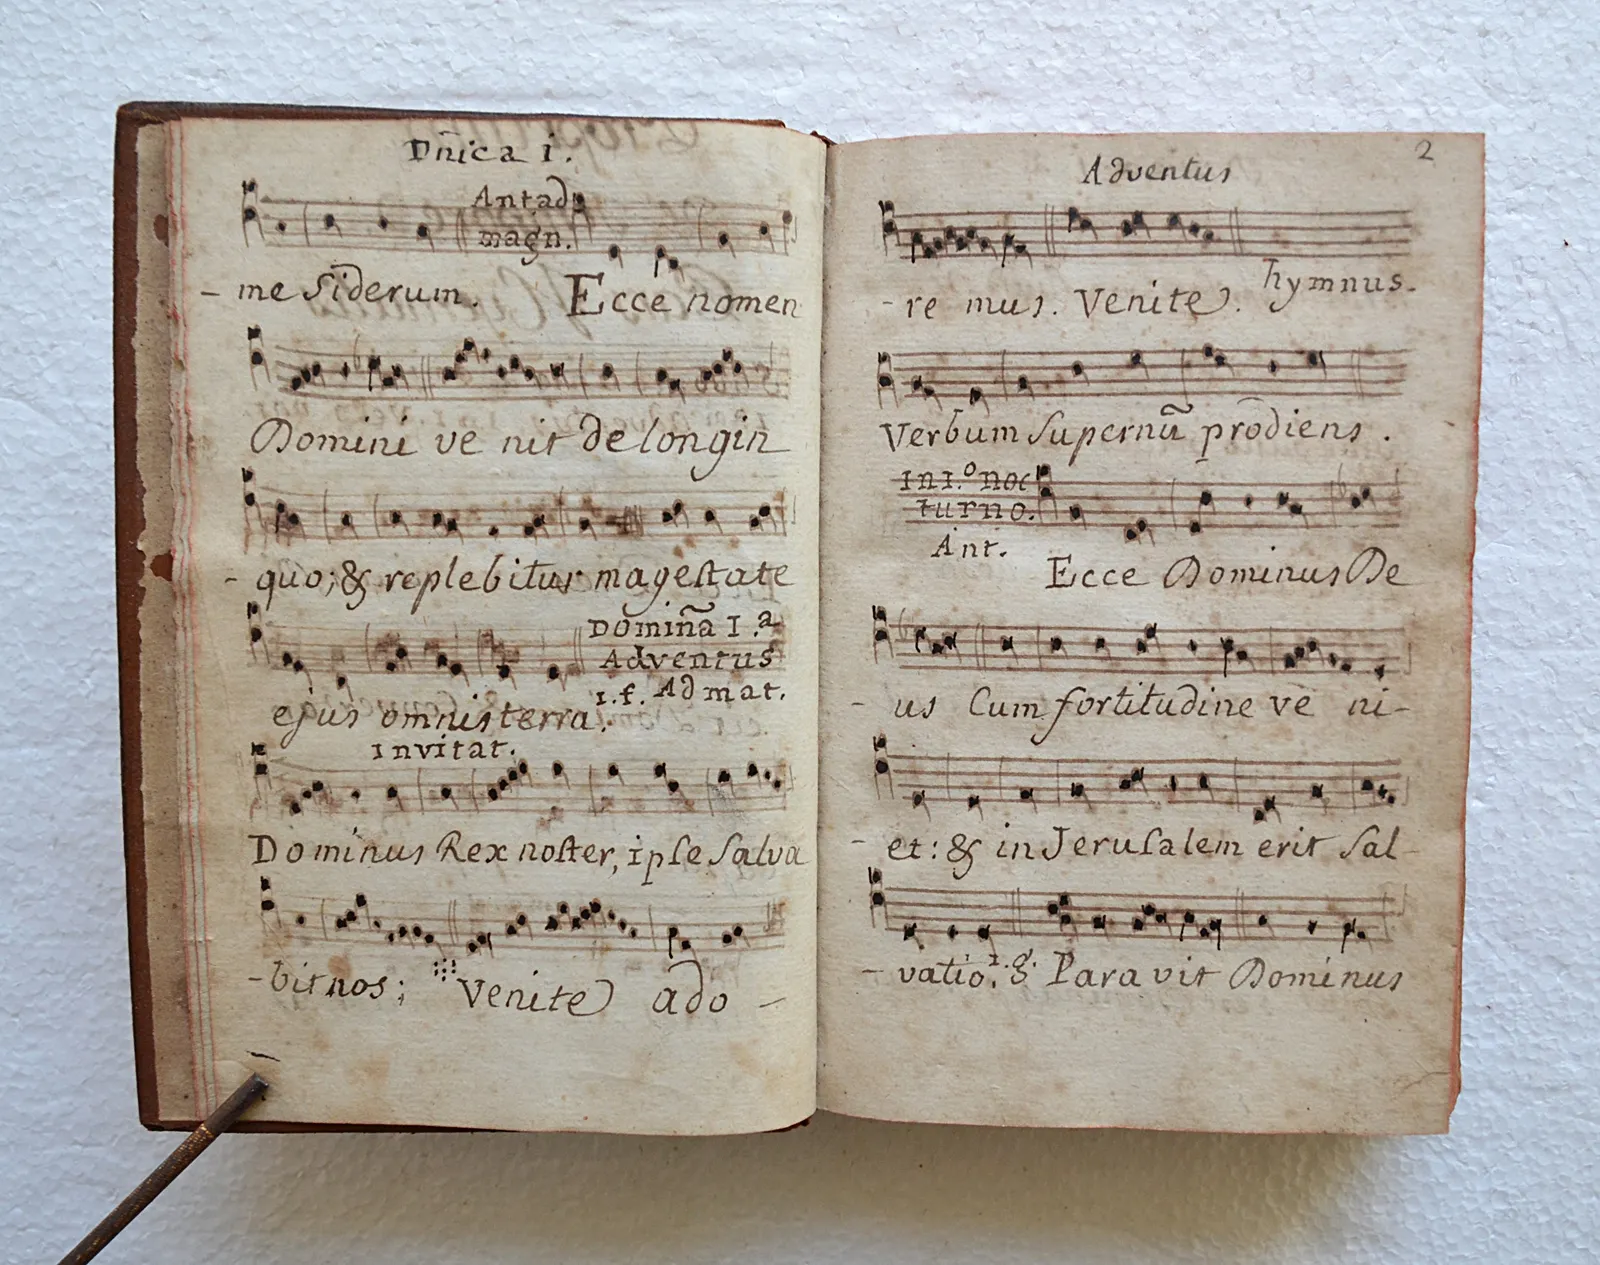 Dñica i.
Ant ad
magn.
- me siderum. Ecce nomen
Domini ve nit de longin
- quo; & replebitur magestate
Domiña I.ª
Adventus
1.f. Ad mat.
ejus omnis terra.
Invitat.
Dominus Rex noster, ipse salva
- bit nos; Venite ado -
2
Adventus
- re mus. Venite. hymnus.
Verbum supernũ prodiens.
in 1.º noc
turno.
Ant.
Ecce Dominus De
- us Cum fortitudine ve ni-
- et: & in Jerusalem erit sal-
- vatio. Paravit Dominus